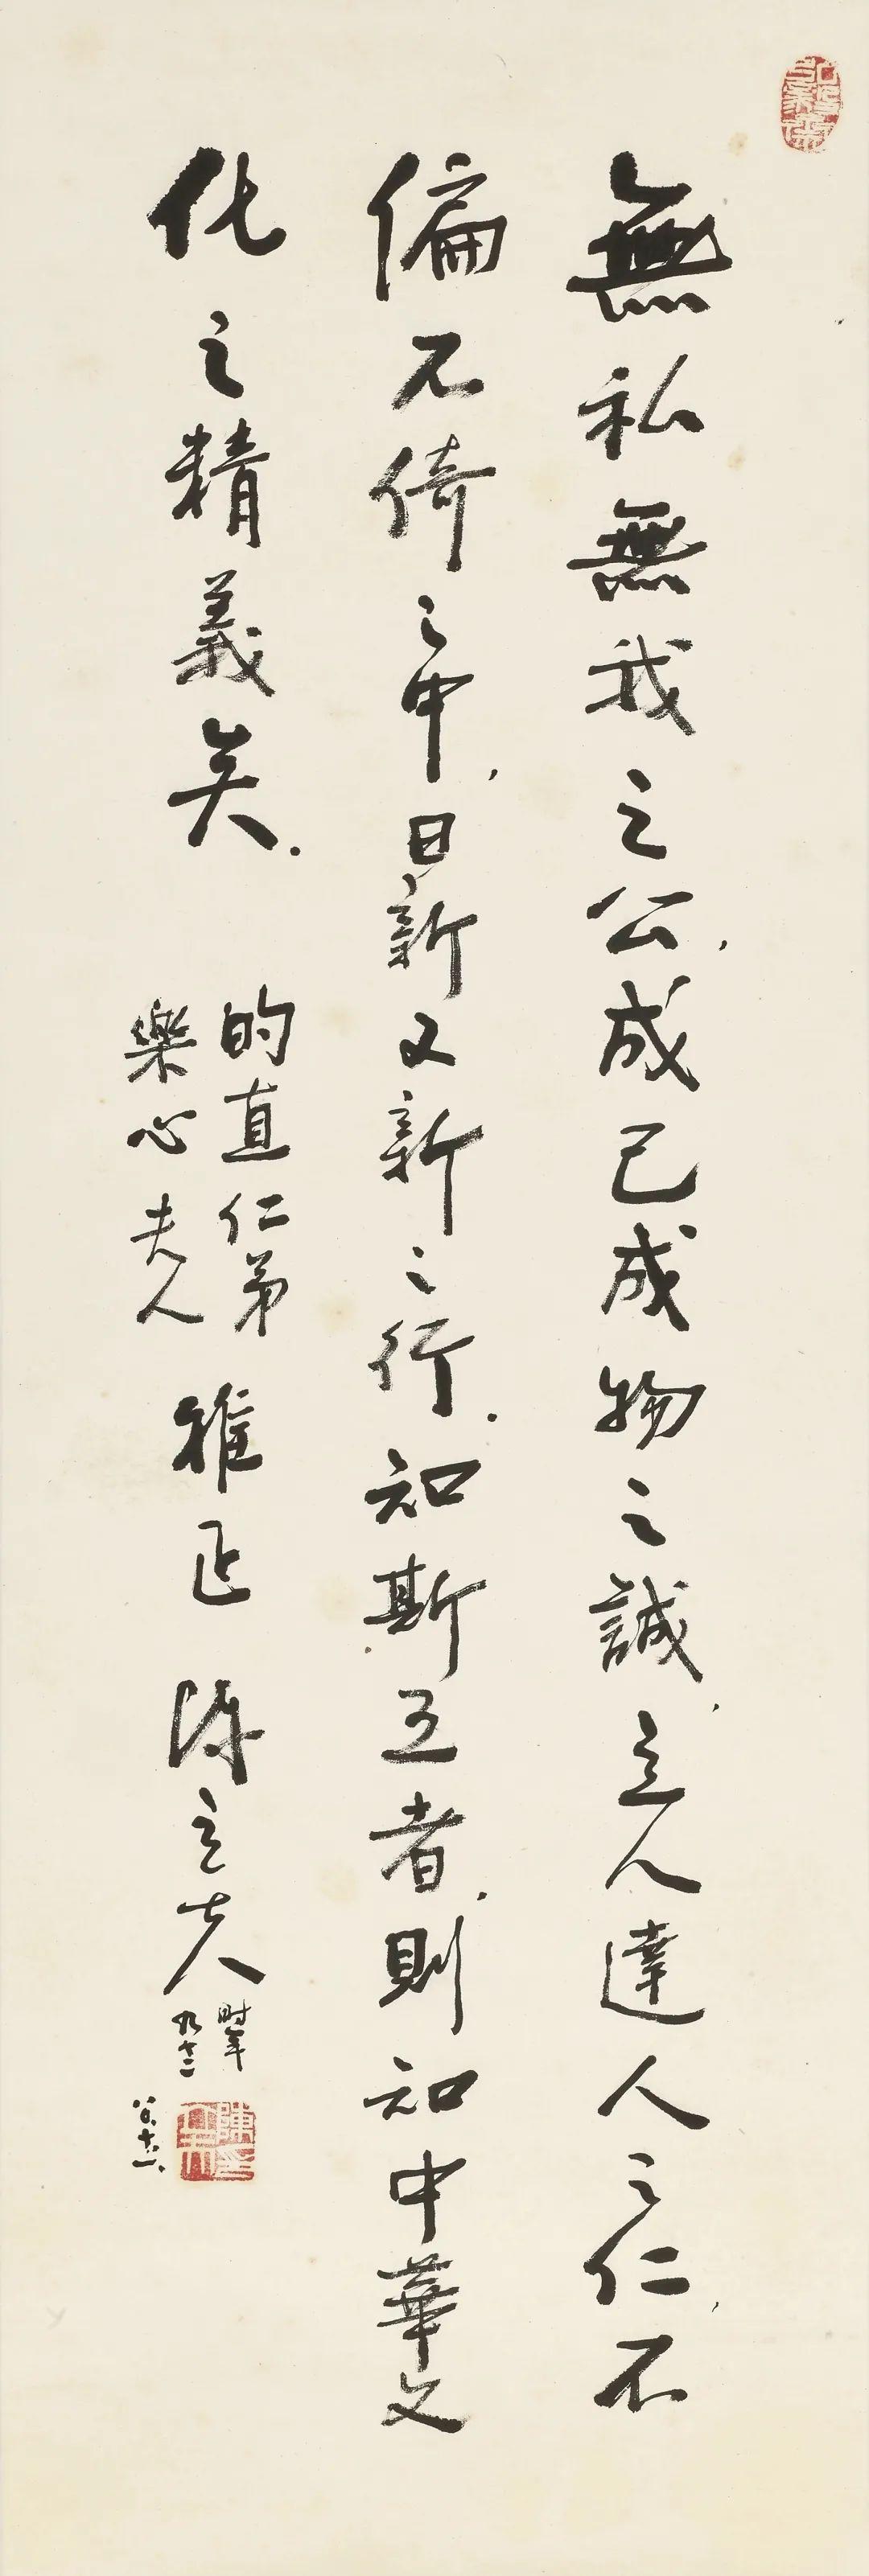 無私無我之公,成己成物之誠,立人達人之仁,不
偏不倚之中,日新又新之行.知斯五者,則知中華文
化之精義矣.
的直仁弟
樂心夫人
雅正 陳立夫
時年
九十二
弘毅齋
陳立夫印